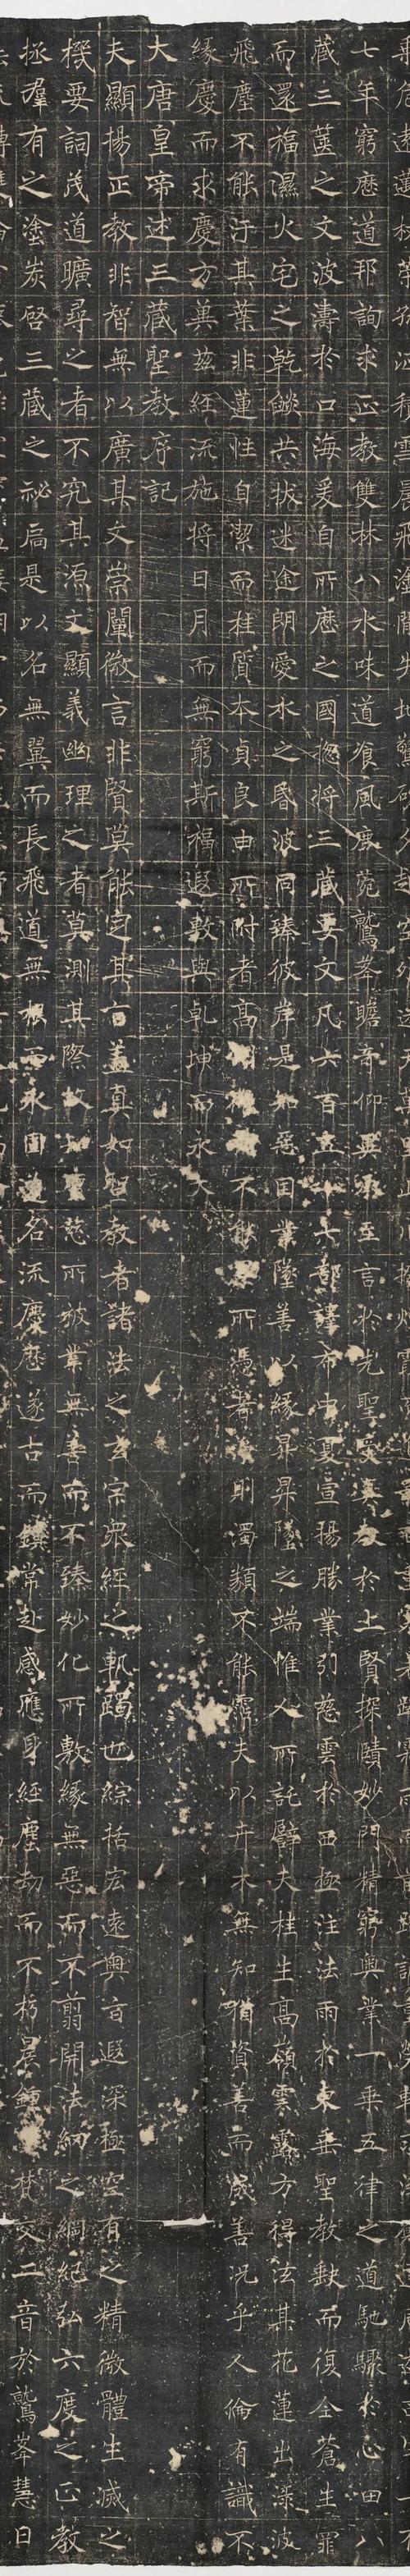 七年窮歷道邦詢求正教雙林八水味道飡風鹿菀鷲峯瞻奇仰異承至言於先聖受真教於上賢探賾妙門精窮奧業一乘五律之道馳驟於心田八
藏三篋之文波濤於口海爰自所歷之國揔將三藏要文凡六百五十七部譯布中夏宣揚勝業引慈雲於西極注法雨於東垂聖教缺而復全蒼生罪
而還福濕火宅之乾燄共拔迷途朗愛水之昏波同臻彼岸是知惡因業墜善以緣昇昇墜之端惟人所託譬夫桂生高嶺雲露方得泫其花蓮出淥波
飛塵不能汙其葉非蓮性自潔而桂質本貞良由所附者高則微物不能累所憑者淨則濁類不能霑夫以卉木無知猶資善而成善況乎人倫有識不
緣慶而求慶方冀茲經流施將日月而無窮斯福遐敷與乾坤而永大
大唐皇帝述三藏聖教序記
夫顯揚正教非智無以廣其文崇闡微言非賢莫能定其旨蓋真如聖教者諸法之玄宗眾經之軌躅也綜括宏遠奧旨遐深極空有之精微體生滅之
機要詞茂道曠尋之者不究其源文顯義幽理之者莫測其際故知聖慈所被業無善而不臻妙化所敷緣無惡而不翦開法網之綱紀弘六度之正教
拯羣有之塗炭啓三藏之祕扃是以名無翼而長飛道無根而永固道名流慶歷遂古而鎮常赴感應身經塵劫而不朽晨鍾夕梵交二音於鷲峯慧日